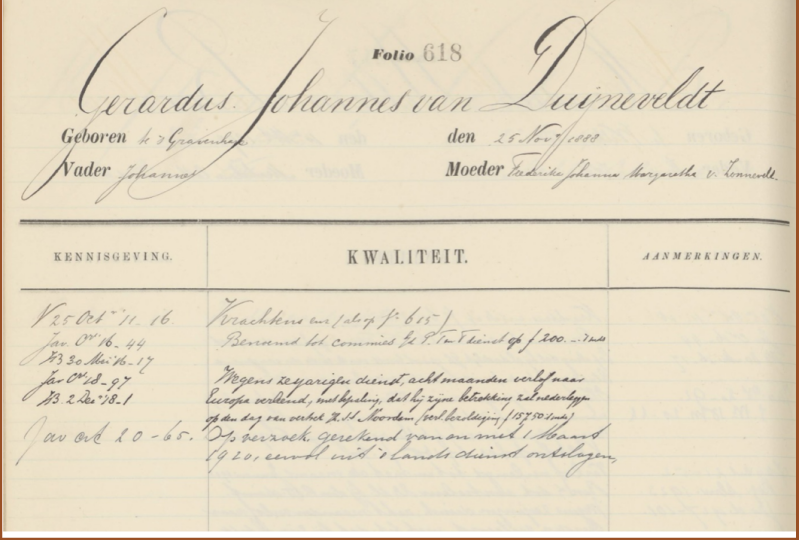 Folio 618
Gerardus Johannes van Duijneveldt
Geboren te 's Gravenhage den 25 Nov 1888
Vader Johannes Moeder Frederika Johanna Margaretha v. Zonneveldt.
KENNISGEVING. KWALITEIT. AANMERKINGEN.
25 Oct 11 - 16. Krachtens enz (als op fo 615)
Jav. Crt 16 - 44 Benoemd tot commies P. T en T dienst op f 200.
30 Mei 16 - 17
Jav Crt 18 - 97 Wegens zesjarigen dienst, acht maanden verlof naar
2 Dec 18 - 1 Europa verleend, met bepaling, dat hij zijne betrekking zal nederleggen
op den dag van vertrek
Jav crt 20 - 65. Op verzoek, gerekend van en met 1 Maart
1920, eervol uit 's lands dienst ontslagen,